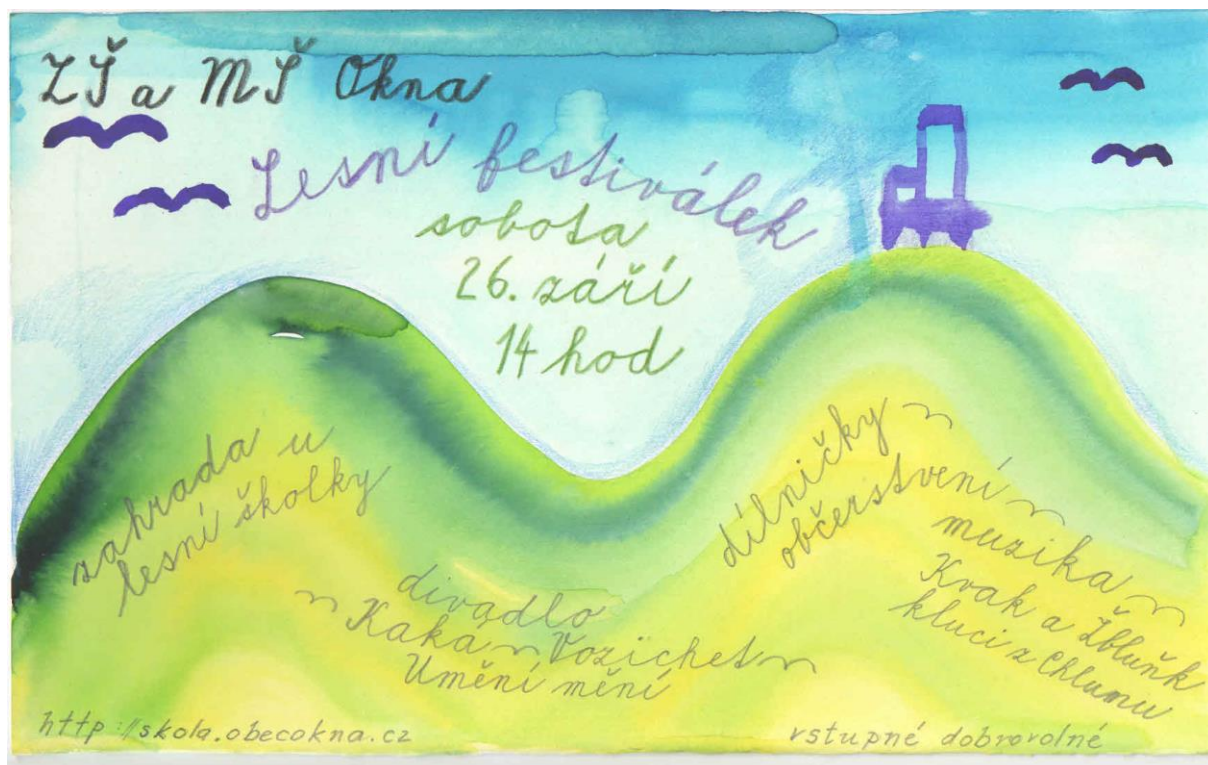 ZŠ a MŠ Okna
Lesní festiválek
sobota
26. září
14 hod
zahrada u
lesní školky
divadlo
Kaká ~ Vozichet
Umění mění
dílničky
občerstvení
muzika
Kvak a Žbluňk
kluci z Chlumu
http://skola.obecokna.cz
vstupné dobrovolné